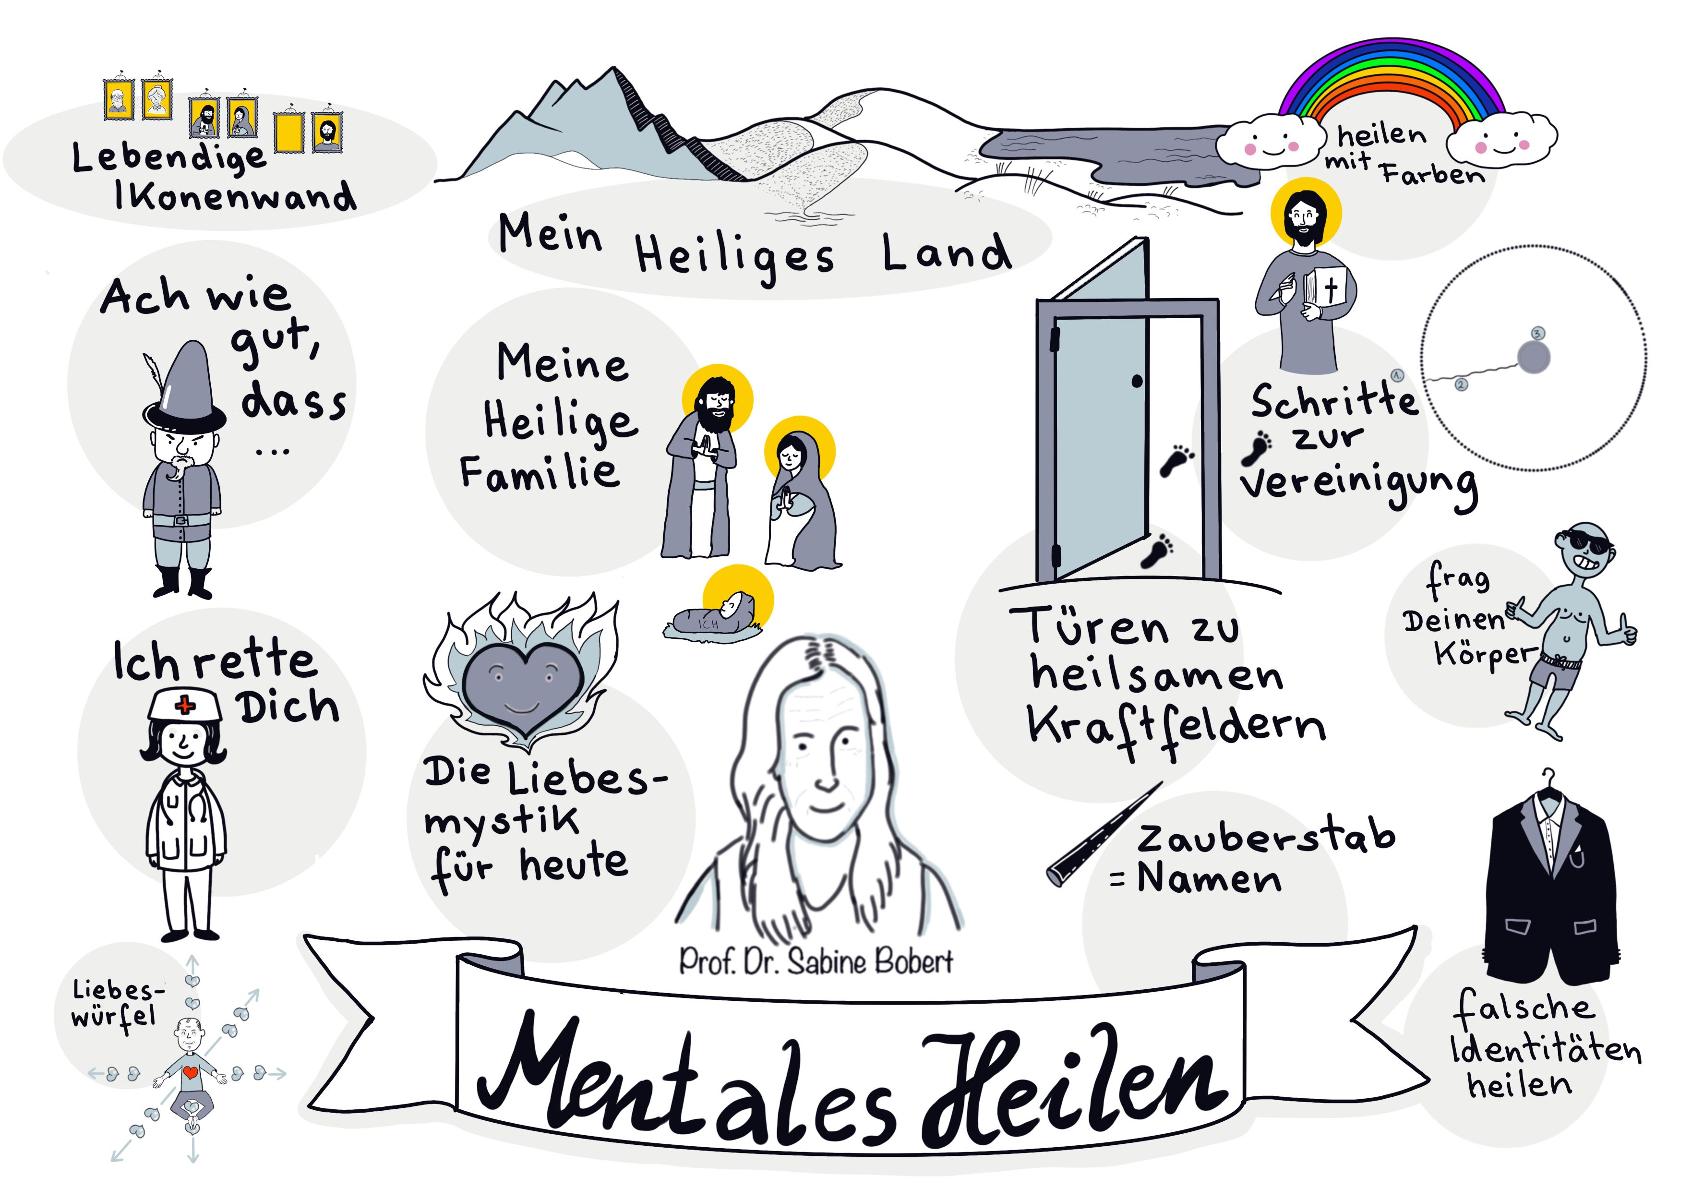 Lebendige
Ikonenwand
Mein Heiliges Land
heilen
mit Farben
Ach wie
gut,
dass
...
Meine
Heilige
Familie
ICH
Schritte
zur
Vereinigung
1.
2
3
frag
Deinen
Körper
Ich rette
Dich
Die Liebes-
mystik
für heute
Türen zu
heilsamen
Kraftfeldern
Zauberstab
= Namen
Liebes-
würfel
Prof. Dr. Sabine Bobert
Mentales Heilen
falsche
Identitäten
heilen